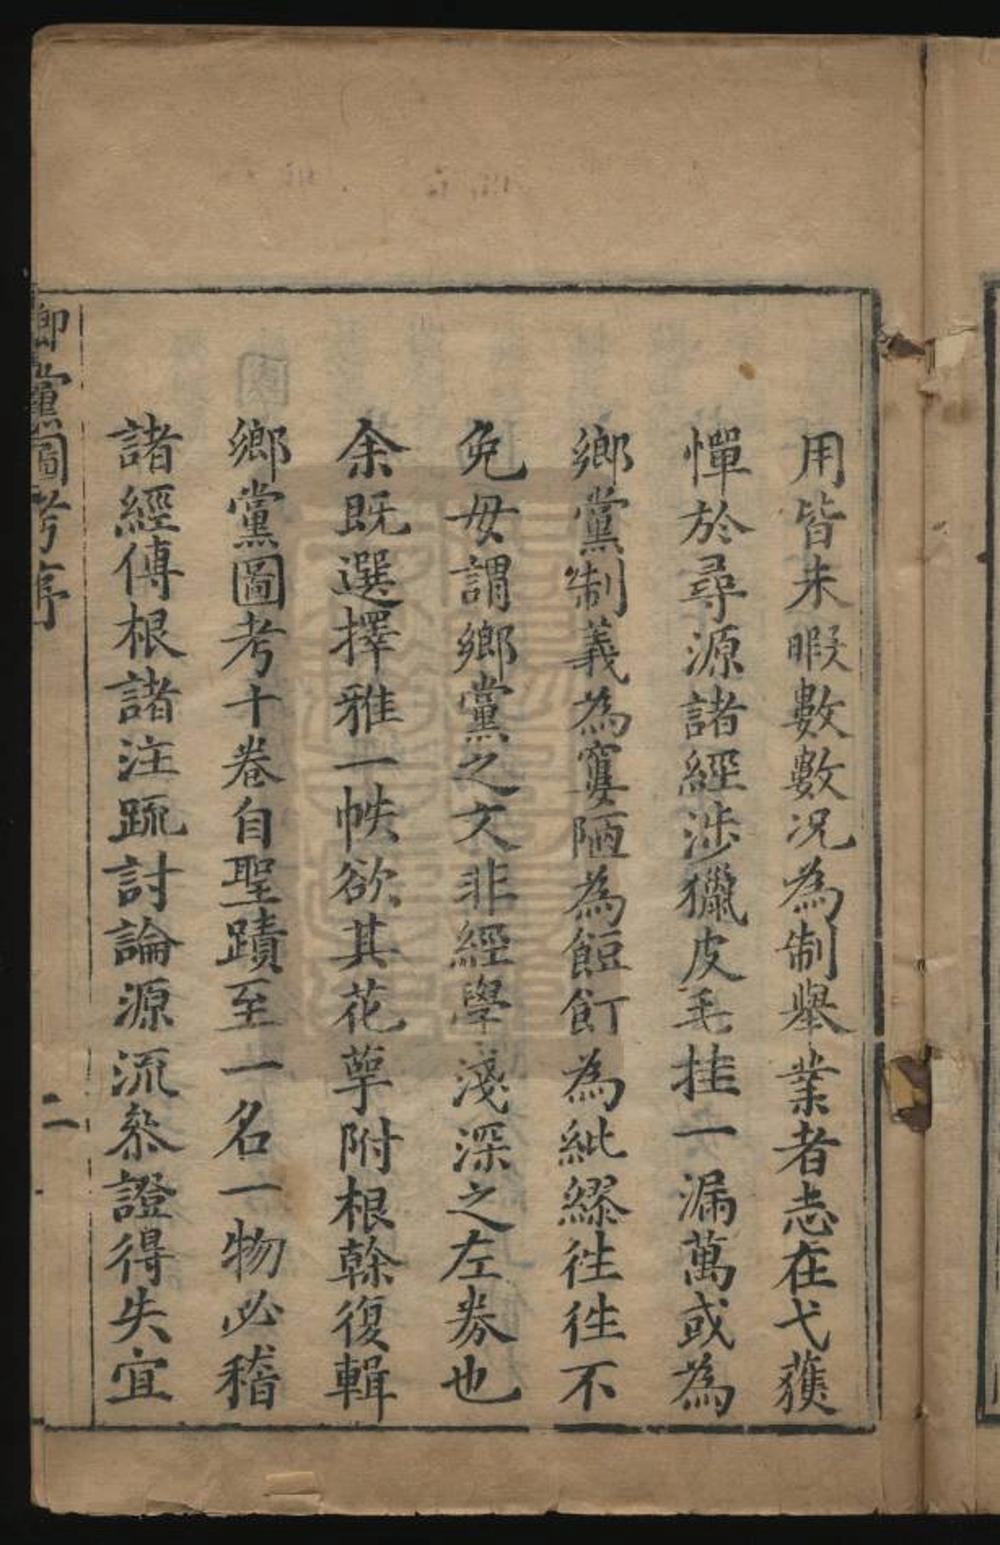 用皆未暇數數况為制舉業者志在弋獲
憚於尋源諸經涉獵皮毛挂一漏萬或為
鄉黨制義為窶陋為餖飣為紕繆徃徃不
免毋謂鄉黨之文非經學淺深之左劵也
余既選擇雅一帙欲其花萼附根榦復輯
鄉黨圖考十卷自聖蹟至一名一物必稽
諸經傳根諸注疏討論源流叅證得失宜
鄉黨圖考序
二